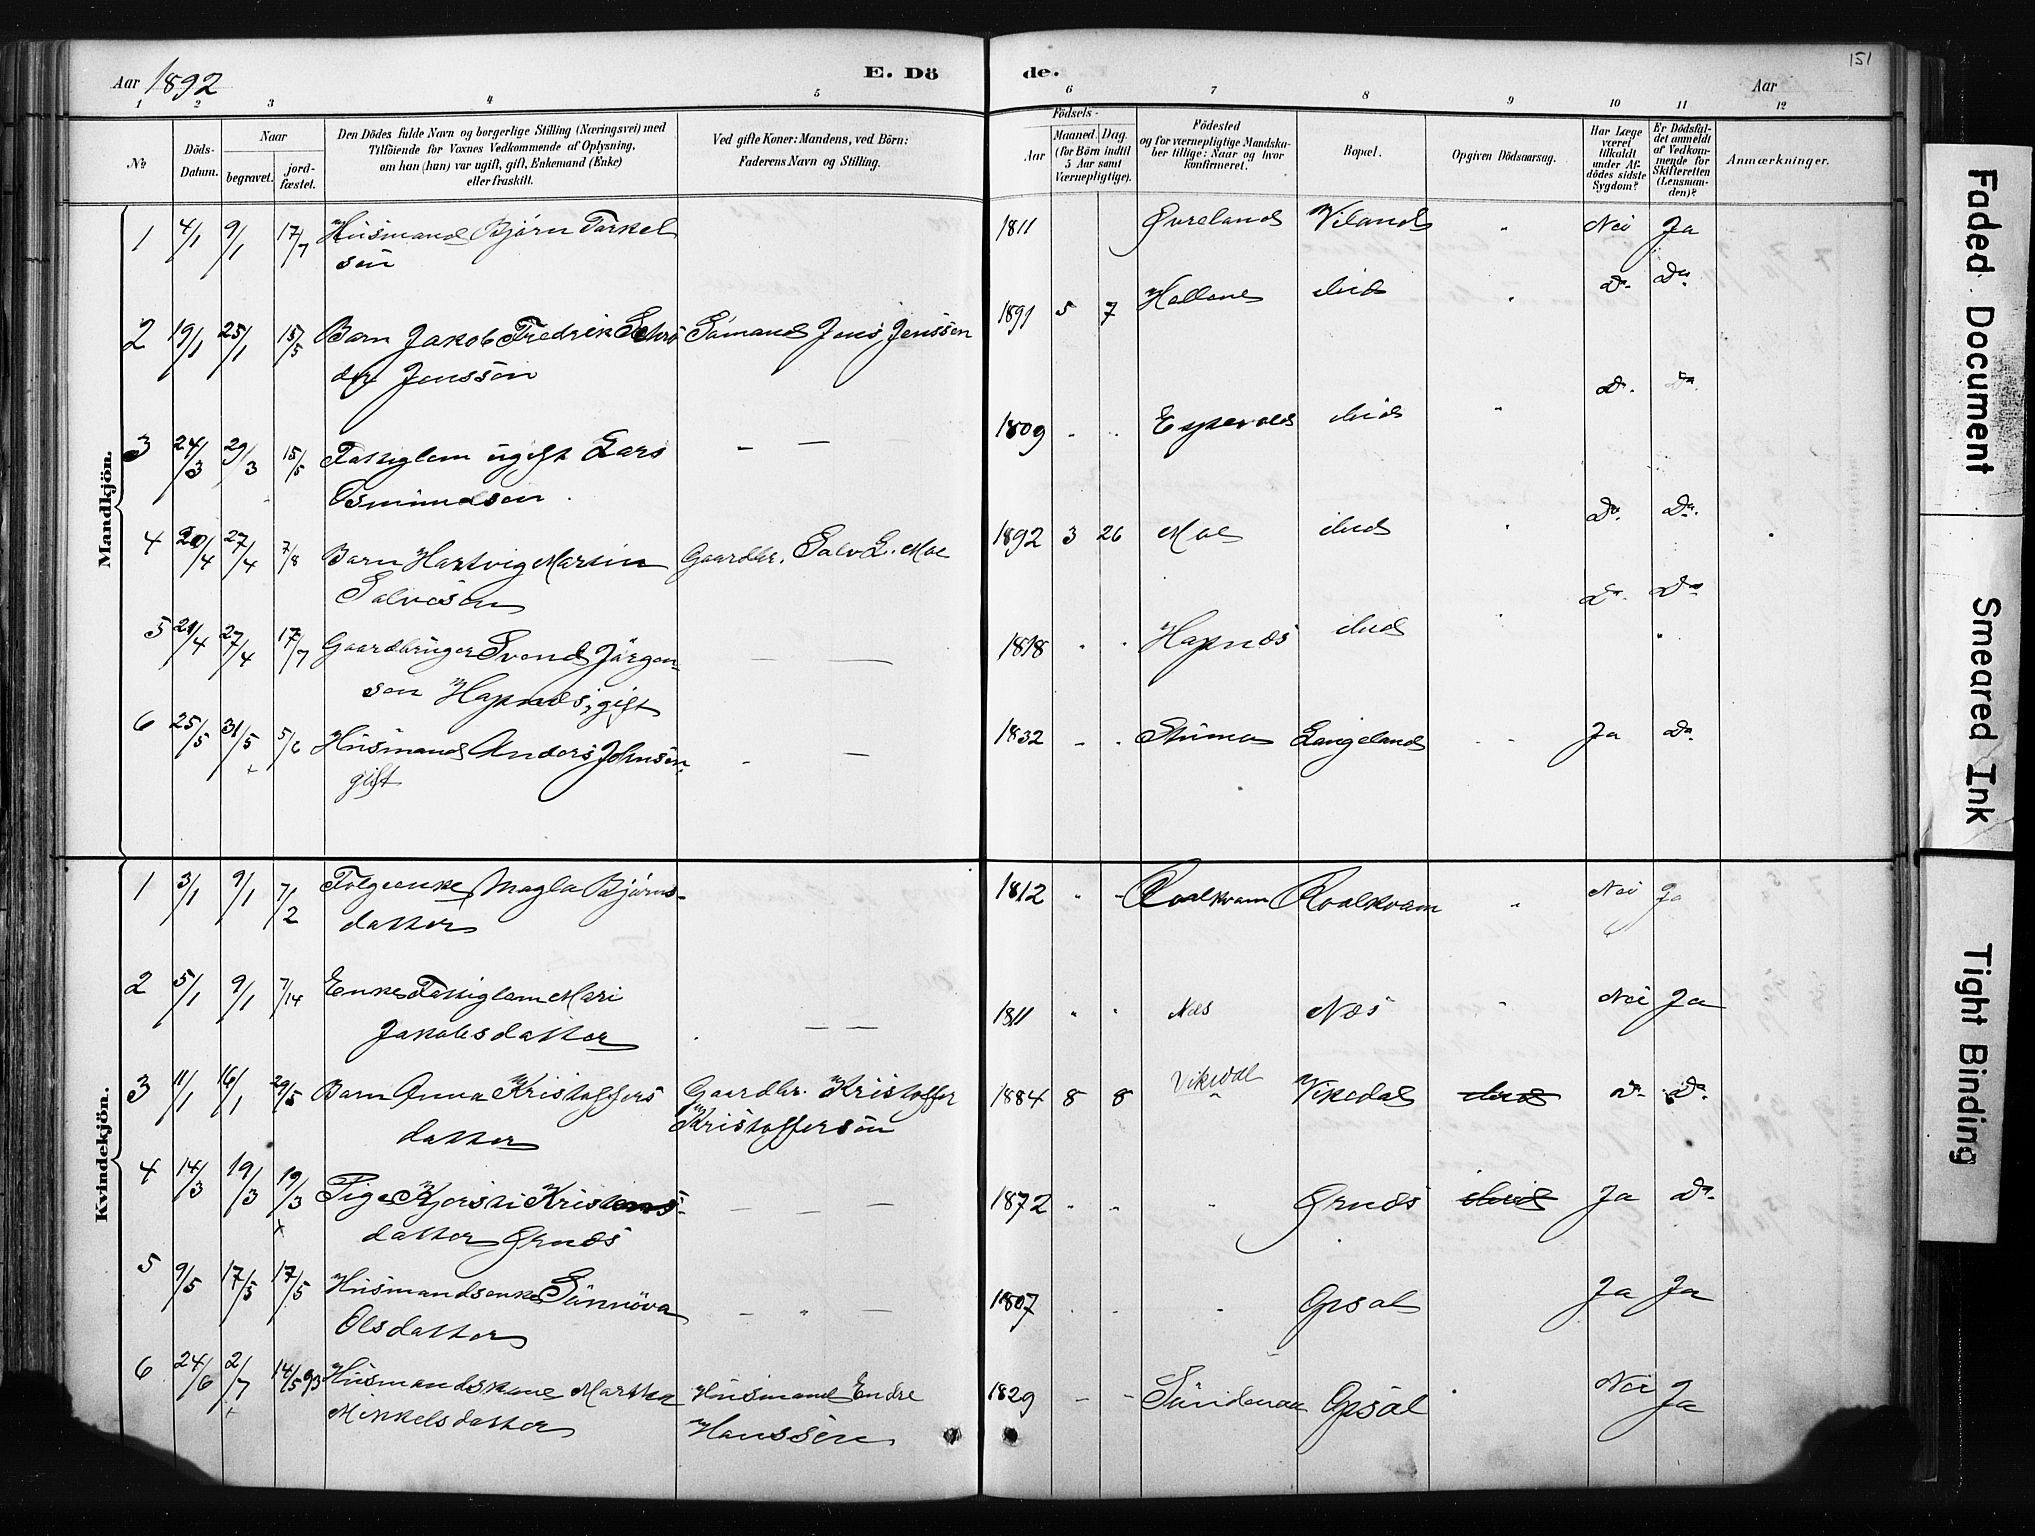 151
Aar 1892
E. Dö
de.
Aar
1 2 3 4 5 6 7 8 9 10 11 12
No
Döds-Datum.
Naar
begravet.
jord-fæstet.
Den Dödes fulde Navn og borgerlige Stilling (Næringsvei) med
Tilföiende for Voxnes Vedkommende af Oplysning,
om han (hun) var ugift, gift, Enkemand (Enke)
eller fraskilt.
Ved gifte Koner: Mandens, ved Börn:
Faderens Navn og Stilling.
Födsels-
Aar
Maaned. Dag.
(for Börn indtil
5 Aar samt
Værnepligtige).
Födested
og for værnepligtige Mandska-
ber tillige: Naar og hvor
konfirmeret.
Bopæl.
Opgiven Dödsaarsag.
Har Læge
været
tilkaldt
under Af-
dödes sidste
Sygdom?
Er Dödsfal-
det anmeldt
af Vedkom-
mende for
Skifteretten
(Lensman-
den)?
Anmærkninger.
Mandkjön.
1 4/1 9/1 17/7 Husmand Bjørn Torkel 1811 Øvreland Viland " Nei Ja
sen
2 19/1 25/1 15/5 Barn Jakob Fredrik Schrö Sömand Jens Jenssen 1891 5 7 Helland ibid " Do. Do.
der Jenssön
3 24/3 29/3 15/5 Fattiglem ugift Lars — — 1809 " " ibid " Do. Do.
Osmundsen
4 20/4 27/4 7/8 Barn Hartvig Martin Gaardbr. Salv L. Moe 1892 3 26 Moe ibid " Do. Do.
Salvesen
5 21/4 27/4 17/7 Gaardbruger Svend Jörgen- — — 1818 " " Hapnæs ibid " Do. Do.
sen Hapnæs, gift
6 25/5 31/5 5/6 Husmand Anders Johnsen. " — 1832 " " Langeland " Ja Do.
gift
Kvindekjön.
1 3/1 9/1 7/2 Magla Bjørns- 1812 " " Roalkvam Roalkvam " Nei Ja
datter
2 5/1 9/1 7/14 Enke Fattiglem Mari — — 1811 " " Næs Næs " Nei Ja
Jakobsdatter
3 11/1 16/1 29/5 Barn Anna Kristoffers Gaardbr. Kristoffer 1884 8 8 Vikedal Vikedal ibid Do. Do.
datter Kristoffersön
4 14/3 19/3 19/3 Pige Kjersti Kristens- — — — 1872 " " " Ørnæs ibid Ja Do.
datter Ørnæs
5 9/5 17/5 17/5 Husmandsenke Sünnöva — " — 1807 " " " Opsal Ja Ja
Olsdatter
6 24/6 2/7 14/5 93 Husmandskone Martha Husmand Endre 1829 — — Opsal Nei Ja
Mikkelsdatter Hanssen
Faded Document
Smeared Ink
Tight Binding